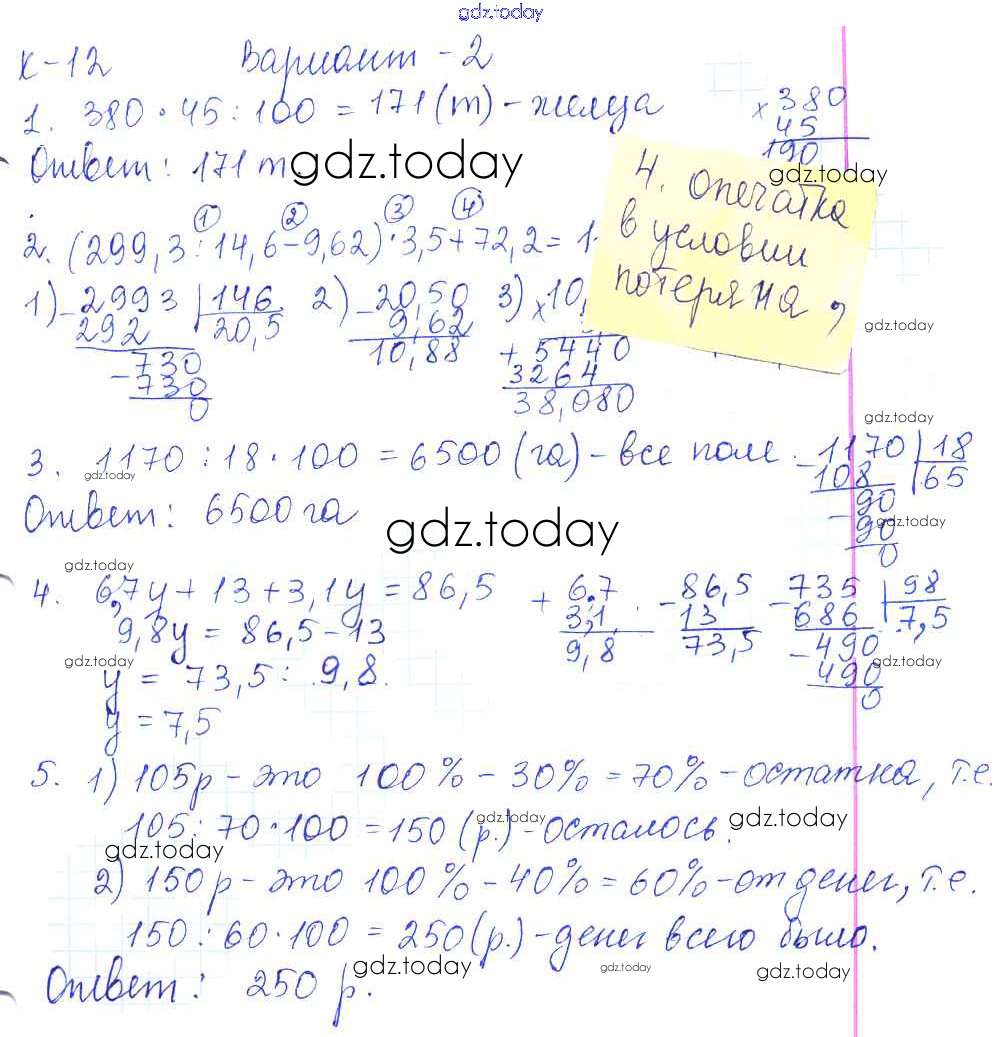 gdz.today
К-12 Вариант - 2
1. 380 · 45 : 100 = 171 (т) - железа
× 380
45
190
Ответ: 171 т
gdz.today
gdz.today
4. Опечатка
в условии
потеряна ,
1 2 3 4
2. (299,3 : 14,6 - 9,62) · 3,5 + 72,2 = 1
1) - 2993 | 146
292 20,5
- 730
730
0
2) - 20,50
9,62
10,88
3) × 10,
+ 5440
3264
38,080
gdz.today
gdz.today
3. 1170 : 18 · 100 = 6500 (га) - все поле.
- 1170 | 18
108 65
- 90
90
0
gdz.today
Ответ: 6500 га
gdz.today
gdz.today
gdz.today
4. 6,7y + 13 + 3,1y = 86,5
9,8y = 86,5 - 13
y = 73,5 : 9,8
y = 7,5
+ 6,7
3,1
9,8
- 86,5
13
73,5
- 735 | 98
686 7,5
- 490
490
0
gdz.today
gdz.today
5. 1) 105р - это 100% - 30% = 70% - остатка, т.е.
105 : 70 · 100 = 150 (р.) - осталось.
gdz.today
gdz.today
gdz.today
2) 150р - это 100% - 40% = 60% - от денег, т.е.
150 : 60 · 100 = 250 (р.) - денег всего было.
Ответ: 250 р.
gdz.today
gdz.today
gdz.today